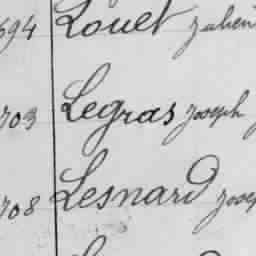 694 Louet Julien
703 Legras Joseph
708 Lesnard